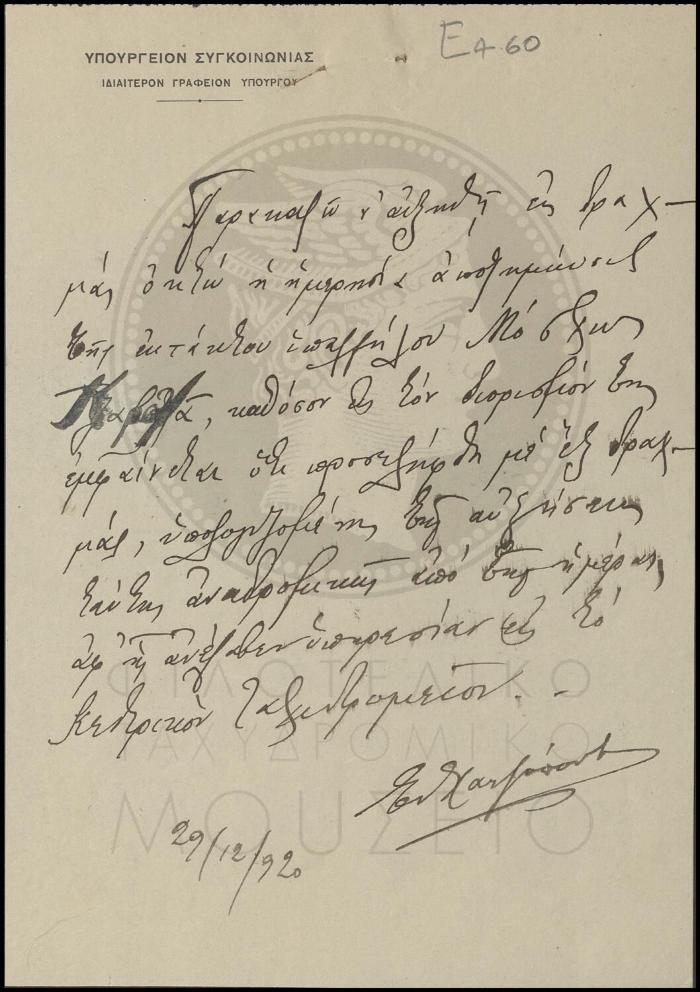 ΥΠΟΥΡΓΕΙΟΝ ΣΥΓΚΟΙΝΩΝΙΑΣ
ΙΔΙΑΙΤΕΡΟΝ ΓΡΑΦΕΙΟΝ ΥΠΟΥΡΓΟΥ
Εα. 60
Παρακαλῶ ν' αὐξηθῇ εἰς δραχ-
μάς ὀκτώ ἡ ἡμερησία ἀποζημίωσις
τῆς ἐκτάκτου ὑπαλλήλου Μόσχως
καθόσον εἰς τόν διορισμόν της
ἐμφαίνεται ὅτι προσελήφθη μέ ἕξ δραχ-
μάς, ὑπολογιζομένης τῆς αὐξήσεως
ταύτης ἀναδρομικῶς ἀπό τῆς ἡμέρας
ἀφ' ἧς ἀνέλαβεν ὑπηρεσίαν εἰς τό
Κεντρικόν Ταχυδρομεῖον.
29/12/920
ΦΙΛΟΤΕΛΙΚΟ
ΤΑΧΥΔΡΟΜΙΚΟ
ΜΟΥΣΕΙΟ